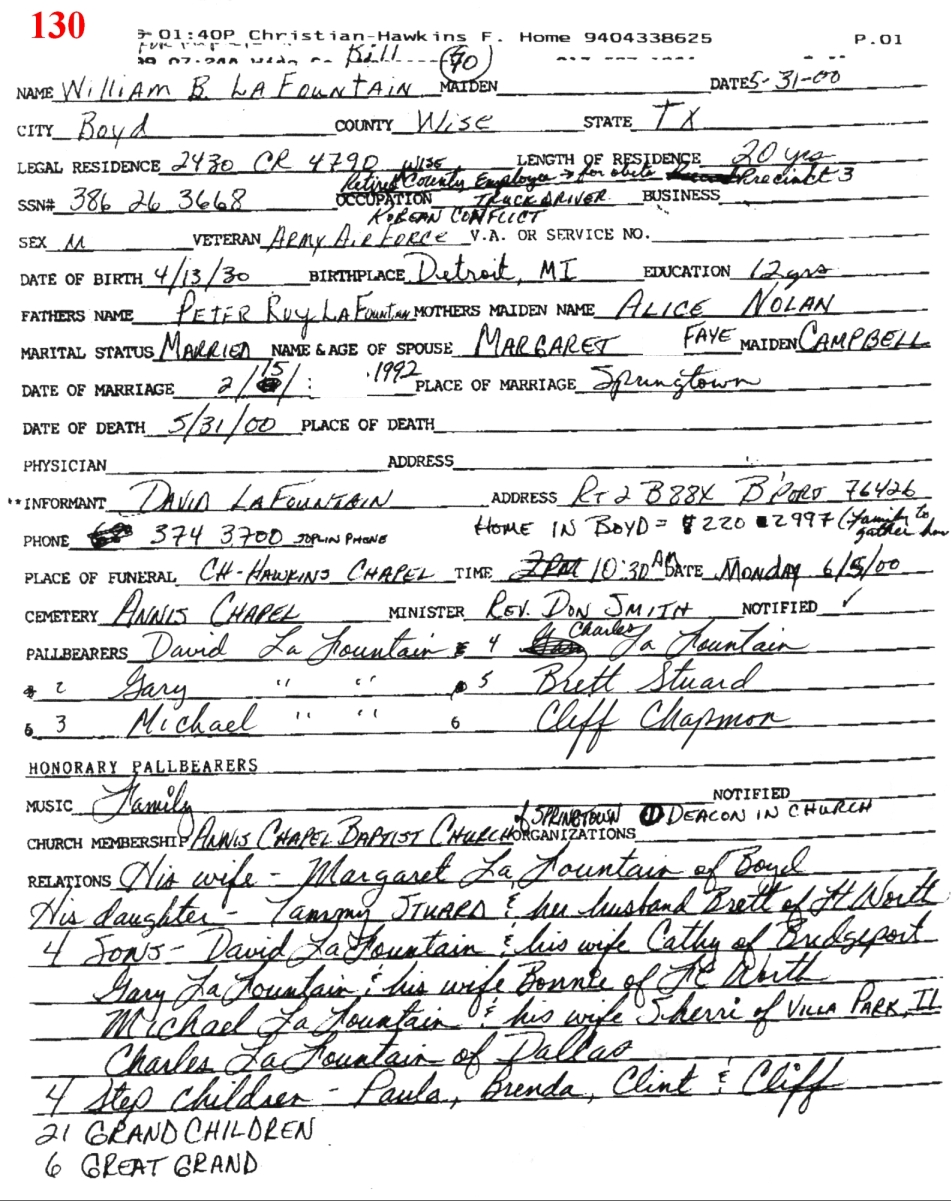 130
01:40P Christian-Hawkins F. Home 9404338625 P.01
Bill 70
NAME William B. LaFountain MAIDEN DATE 5-31-00
CITY Boyd COUNTY Wise STATE TX
LEGAL RESIDENCE 2430 CR 4790 LENGTH OF RESIDENCE 20 yrs
Retired Wise County Employee → for obits Precinct 3
SSN# 386 26 3668 OCCUPATION TRUCK DRIVER BUSINESS
KOREAN CONFLICT
SEX M VETERAN ARMY AIR FORCE V.A. OR SERVICE NO.
DATE OF BIRTH 4/13/30 BIRTHPLACE Detroit, MI EDUCATION 12 yrs
FATHERS NAME PETER RUY LAFOUNTAIN MOTHERS MAIDEN NAME ALICE NOLAN
MARITAL STATUS MARRIED NAME & AGE OF SPOUSE MARGARET FAYE MAIDEN CAMPBELL
DATE OF MARRIAGE 2/15/ 1992 PLACE OF MARRIAGE Springtown
DATE OF DEATH 5/31/00 PLACE OF DEATH
PHYSICIAN ADDRESS
**INFORMANT DAVID LAFOUNTAIN ADDRESS RT 2 B 88X B'PORT 76426
PHONE 374 3700 JOPLIN PHONE HOME IN BOYD = 220 2997 (family to gather
PLACE OF FUNERAL CH-HAWKINS CHAPEL TIME 2PM 10:30 AM DATE MONDAY 6/5/00
CEMETERY ANNIS CHAPEL MINISTER REV. DON SMITH NOTIFIED ✓
PALLBEARERS David La Fountain 4 Charles La Fountain
2 Gary " " 5 Brett Stuard
3 Michael " " 6 Cliff Chapmon
HONORARY PALLBEARERS
MUSIC Family NOTIFIED
CHURCH MEMBERSHIP ANNIS CHAPEL BAPTIST CHURCH of SPRINGTOWN ORGANIZATIONS ① DEACON IN CHURCH
RELATIONS His wife - Margaret La Fountain of Boyd
His daughter - Tammy STUARD & her husband Brett of Ft Worth
4 SONS - David LaFountain & his wife Cathy of Bridgeport
Gary LaFountain & his wife Bonnie of Ft Worth
Michael La Fountain & his wife Sherri of VILLA PARK, Il
Charles LaFountain of Dallas
4 Step children - Paula, Brenda, Clint & Cliff
21 GRAND CHILDREN
6 GREAT GRAND